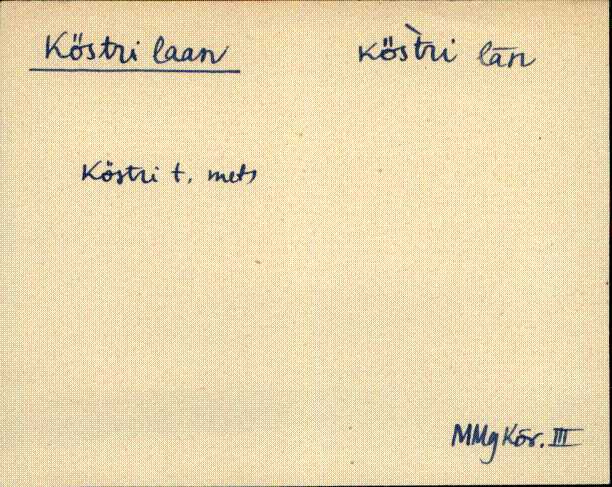 Köstri laan Kös̀tri lān
Köstri t. mets
MMg Kõr. III